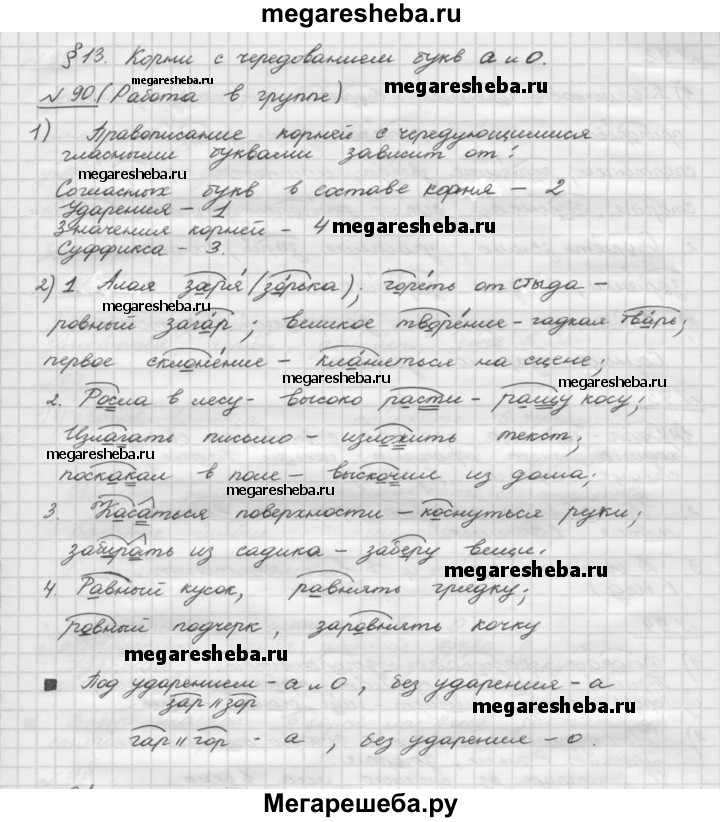 megaresheba.ru
§ 13. Корни с чередованием букв а и о.
megaresheba.ru
№ 90. (Работа в группе) megaresheba.ru
1) Правописание корней с чередующимися
гласными буквами зависит от:
megaresheba.ru
Согласных букв в составе корня – 2
Ударения – 1
Значения корней – 4 megaresheba.ru
Суффикса – 3.
2) 1. Алая заря́ (зо́рька); горе́ть от стыда –
megaresheba.ru
ровный зага́р; великое творе́ние – гадкая тва́рь;
первое склоне́ние – кла́няться на сцене;
megaresheba.ru megaresheba.ru
2. Росла в лесу – высоко расти – ращу косу;
Излагать письмо – изложить текст;
megaresheba.ru
поскакал в поле – выскочил из дома;
megaresheba.ru
3. Касаться поверхности – коснуться руки;
забирать из садика – заберу вещи.
megaresheba.ru
4. Равный кусок, равнять грядку;
ровный подчерк, заровнять кочку
megaresheba.ru
Под ударением – а и о, без ударения – а
зар // зор
megaresheba.ru
гар // гор – а, без ударения – о.
Мегарешеба.ру